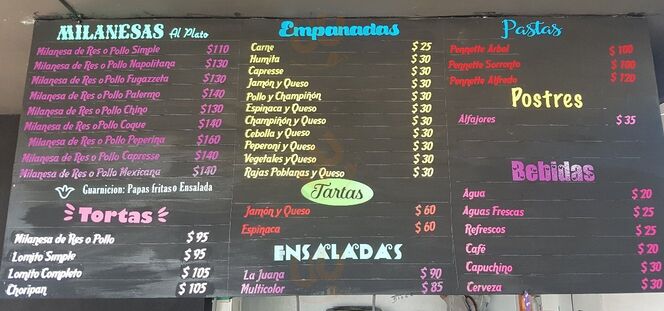 MILANESAS Al Plato
Milanesa de Res o Pollo Simple $110
Milanesa de Res o Pollo Napolitana $130
Milanesa de Res o Pollo Fugazzeta $130
Milanesa de Res o Pollo Palermo $140
Milanesa de Res o Pollo Chino $130
Milanesa de Res o Pollo Coque $140
Milanesa de Res o Pollo Peperina $160
Milanesa de Res o Pollo Capresse $140
Milanesa de Res o Pollo Mexicana $140
Guarnicion: Papas fritas o Ensalada
Tortas
Milanesa de Res o Pollo $95
Lomito Simple $95
Lomito Completo $105
Choripan $105
Empanadas
Carne $25
Humita $30
Capresse $30
Jamón y Queso $30
Pollo y Champiñón $30
Espinaca y Queso $30
Champiñón y Queso $30
Cebolla y Queso $30
Peperoni y Queso $30
Vegetales y Queso $30
Rajas Poblanas y Queso $30
Tartas
Jamón y Queso $60
Espinaca $60
ENSALADAS
La Juana $90
Multicolor $85
Pastas
Pennette Arbol $100
Pennette Sorrento $100
Pennette Alfredo $120
Postres
Alfajores $35
Bebidas
Agua $20
Aguas Frescas $25
Refrescos $25
Café $20
Capuchino $30
Cerveza $30